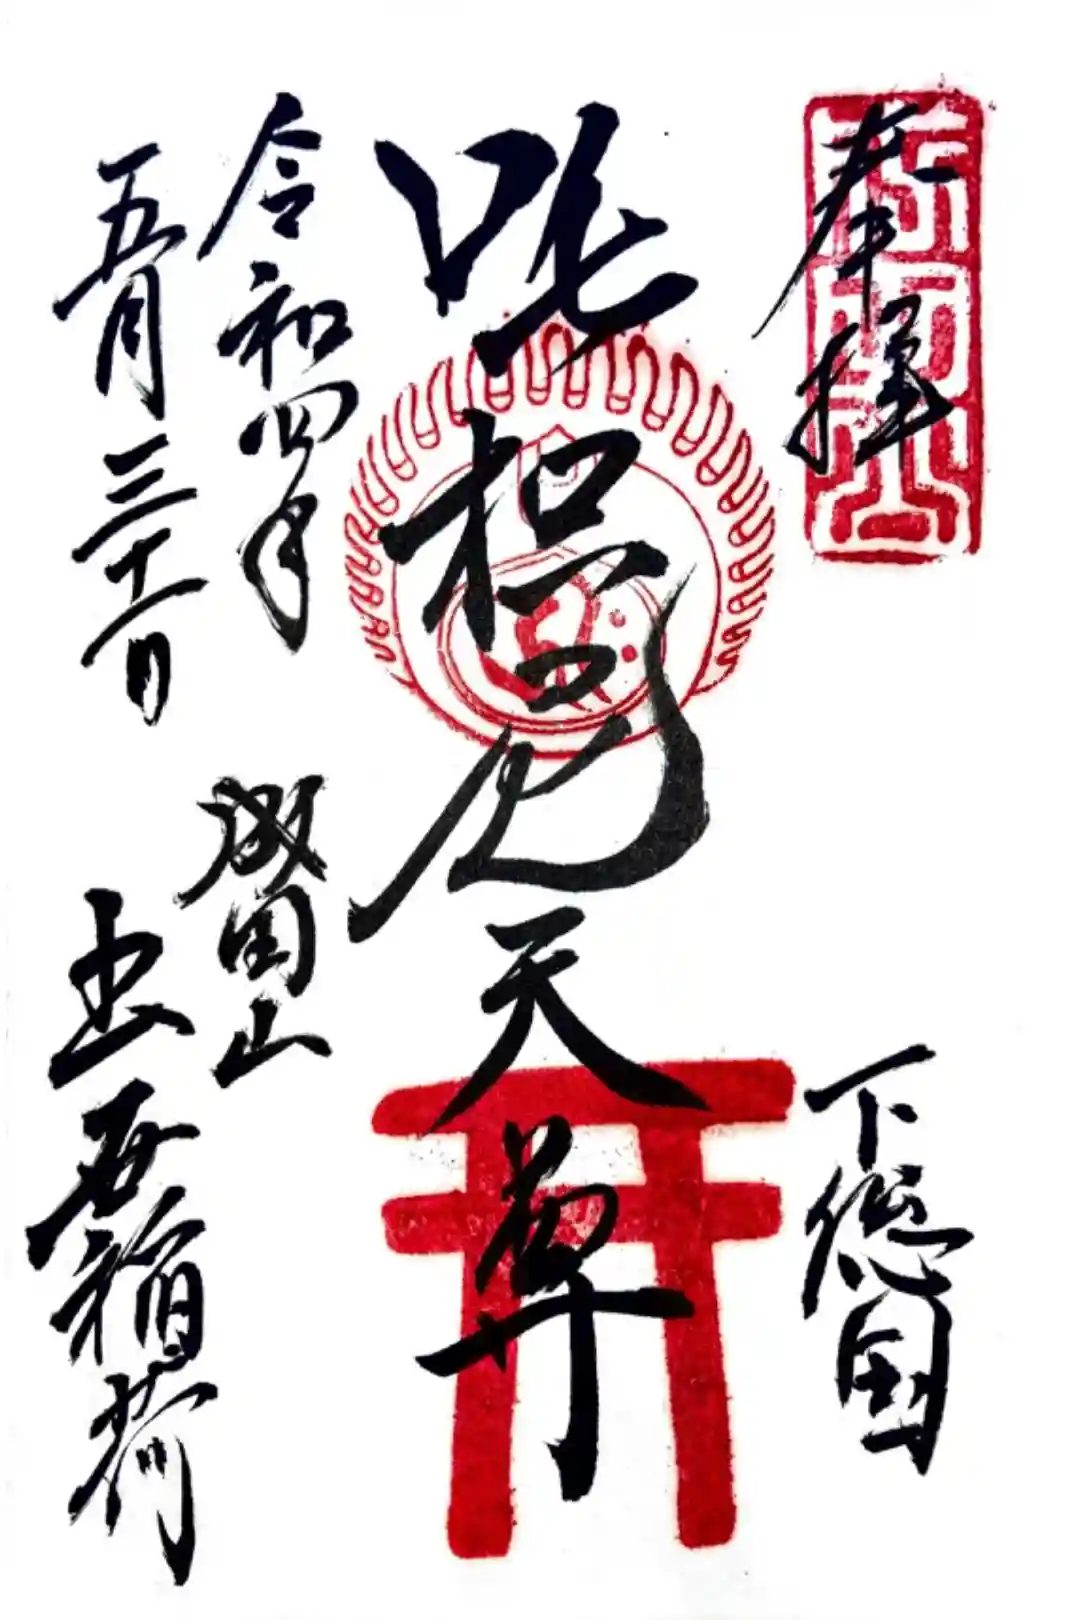 奉拝
下總国
吒枳尼天尊
令和四年
五月三十一日
成田山
出世稲荷